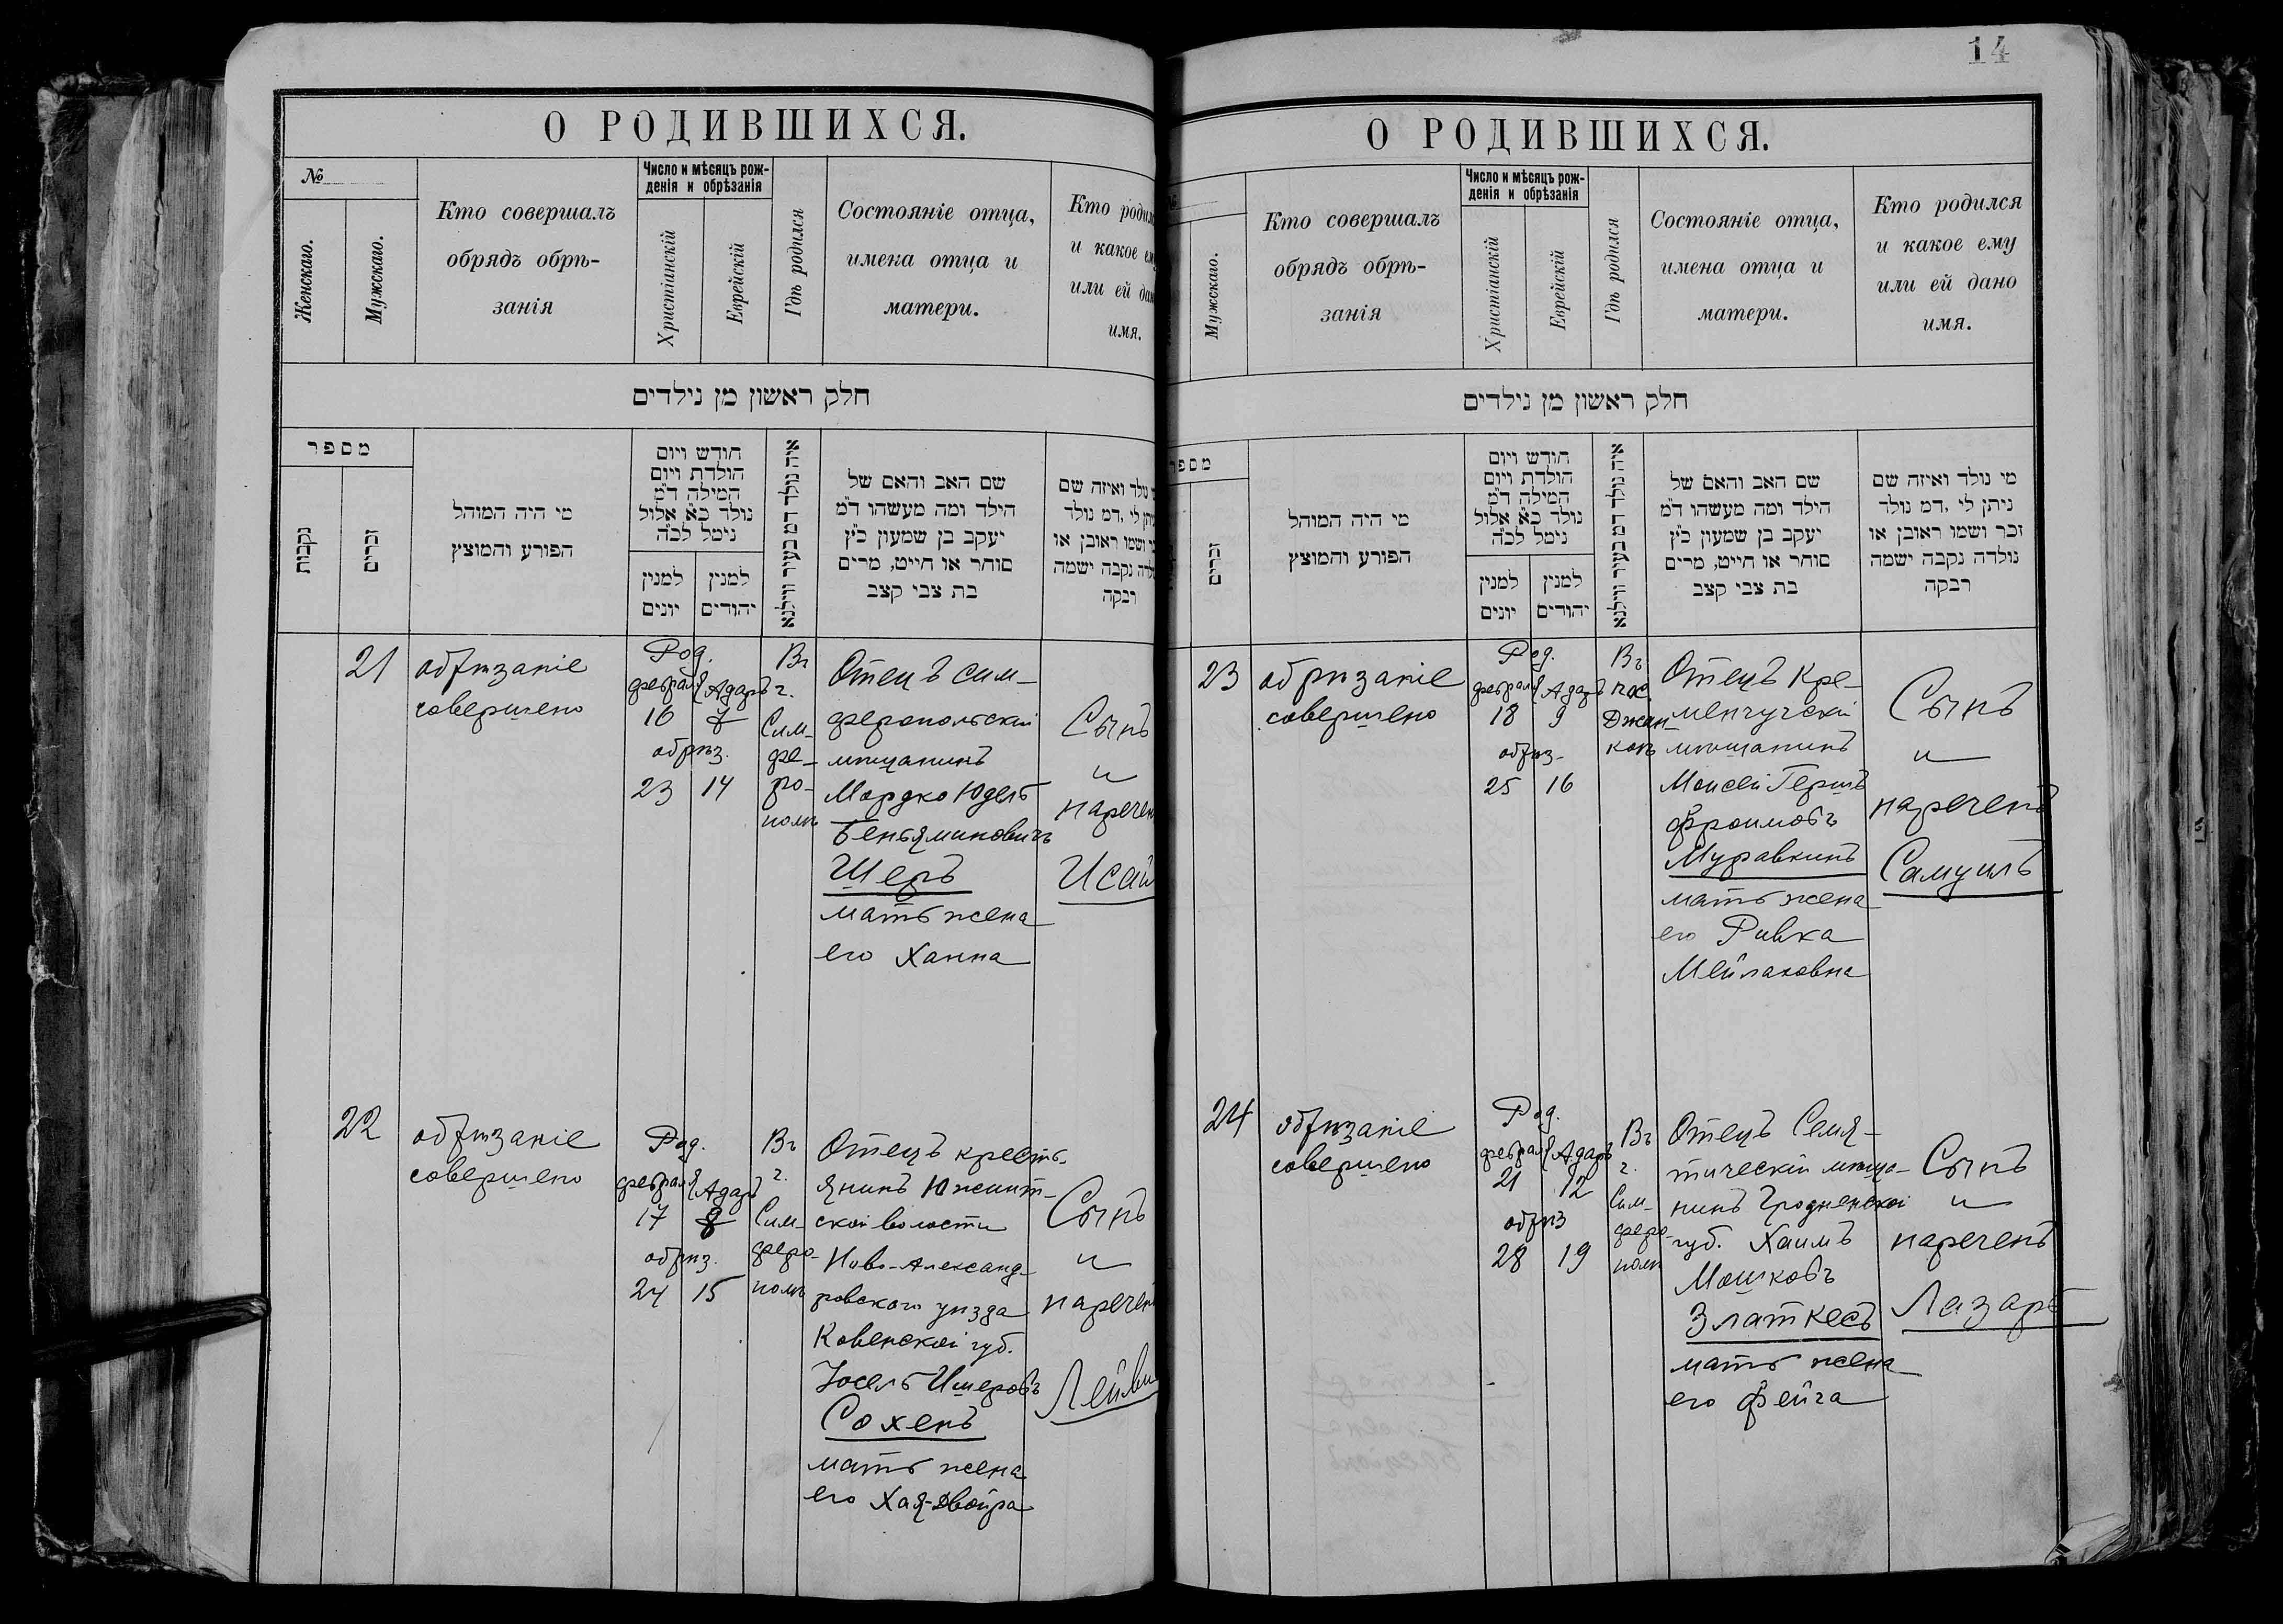 О РОДИВШИХСЯ.
№
Женскаго.
Мужскаго.
Кто совершалъ
обрядъ обрѣ-
занія
Число и мѣсяцъ рож-
денія и обрѣзанія
Христіанскій
Еврейскій
Гдѣ родился
Состояніе отца,
имена отца и
матери.
Кто родил
и какое ем
или ей дан
имя.
חלק ראשון מן נילדים
מספר
נקבות
זכרים
מי היה המוהל
הפורע והמוצץ
חודש ויום
הולדת ויום
המילה ד״מ
נולד כ״א אלול
נימל לכ״ה
למנין
יונים
למנין
יהודים
איה נולד דמ בעיר ווילנא
שם האב והאם של
הילד ומה מעשהו ד״מ
יעקב בן שמעון כ״ץ
סוחר או חייט, מרים
בת צבי קצב
נולד ואיזה שם
יתן לי, דמ נולד
ושמו ראובן או
לדה נקבה ישמה
רבקה
21
обрѣзаніе
совершено
Род.
февраля Адаръ
16 7
обрѣз.
23 14
Въ
г.
Сим-
фе-
ро-
полѣ
Отецъ сим-
феропольскій
мѣщанинъ
Мордко Юдель
Беньяминовичъ
Шеръ
мать жена
его Ханна
Сынъ
и
наречен
Исай
22
обрѣзаніе
совершено
Род.
февраля Адаръ
17 8
обрѣз.
24 15
Въ
г.
Сим-
феро-
полѣ
Отецъ кресть-
янинъ Южинт-
ской волости
Ново-Александ-
ровского уѣзда
Ковенской губ.
Іосель Ишеровъ
Сохенъ
мать жена
его Хая-Двойра
Сынъ
и
наречен
Лейви
14
О РОДИВШИХСЯ.
Мужскаго.
Кто совершалъ
обрядъ обрѣ-
занія
Число и мѣсяцъ рож-
денія и обрѣзанія
Христіанскій
Еврейскій
Гдѣ родился
Состояніе отца,
имена отца и
матери.
Кто родился
и какое ему
или ей дано
имя.
חלק ראשון מן נילדים
מספר
זכרים
מי היה המוהל
הפורע והמוצץ
חודש ויום
הולדת ויום
המילה ד״מ
נולד כ״א אלול
נימל לכ״ה
למנין
יונים
למנין
יהודים
איה נולד דמ בעיר ווילנא
שם האב והאם של
הילד ומה מעשהו ד״מ
יעקב בן שמעון כ״ץ
סוחר או חייט, מרים
בת צבי קצב
מי נולד ואיזה שם
ניתן לי, דמ נולד
זכר ושמו ראובן או
נולדה נקבה ישמה
רבקה
23
обрѣзаніе
совершено
Род.
февраля Адаръ
18 9
обрѣз-
25 16
Въ
пос.
Джан-
коѣ
Отецъ Кре-
менчугскій
мѣщанинъ
Моисей Гершъ
Фроимовъ
Муравкинъ
мать жена
его Ривка
Мейлаховна
Сынъ
и
нареченъ
Самуилъ
24
обрѣзаніе
совершено
Род.
февраля Адаръ
21 12
обрѣз
28 19
Въ
г.
Сим-
феро-
полѣ
Отецъ Семя-
тическій мѣща-
нинъ Гродненской
губ. Хаимъ
Мошковъ
Златкесъ
мать жена
его Фейга
Сынъ
и
нареченъ
Лазарь